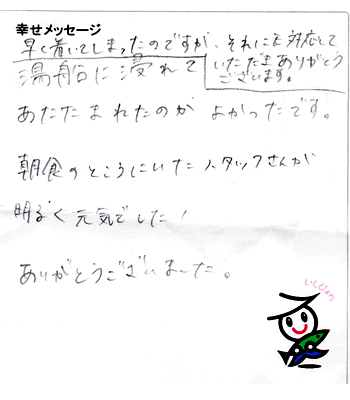 幸せメッセージ
早く着いてしまったのですが、それにも対応して
いただきありがとう
ございます。
湯船に浸れて
あたたまれたのが よかったです。
朝食のところにいたスタッフさんが
明るく元気でした!
ありがとうございました。